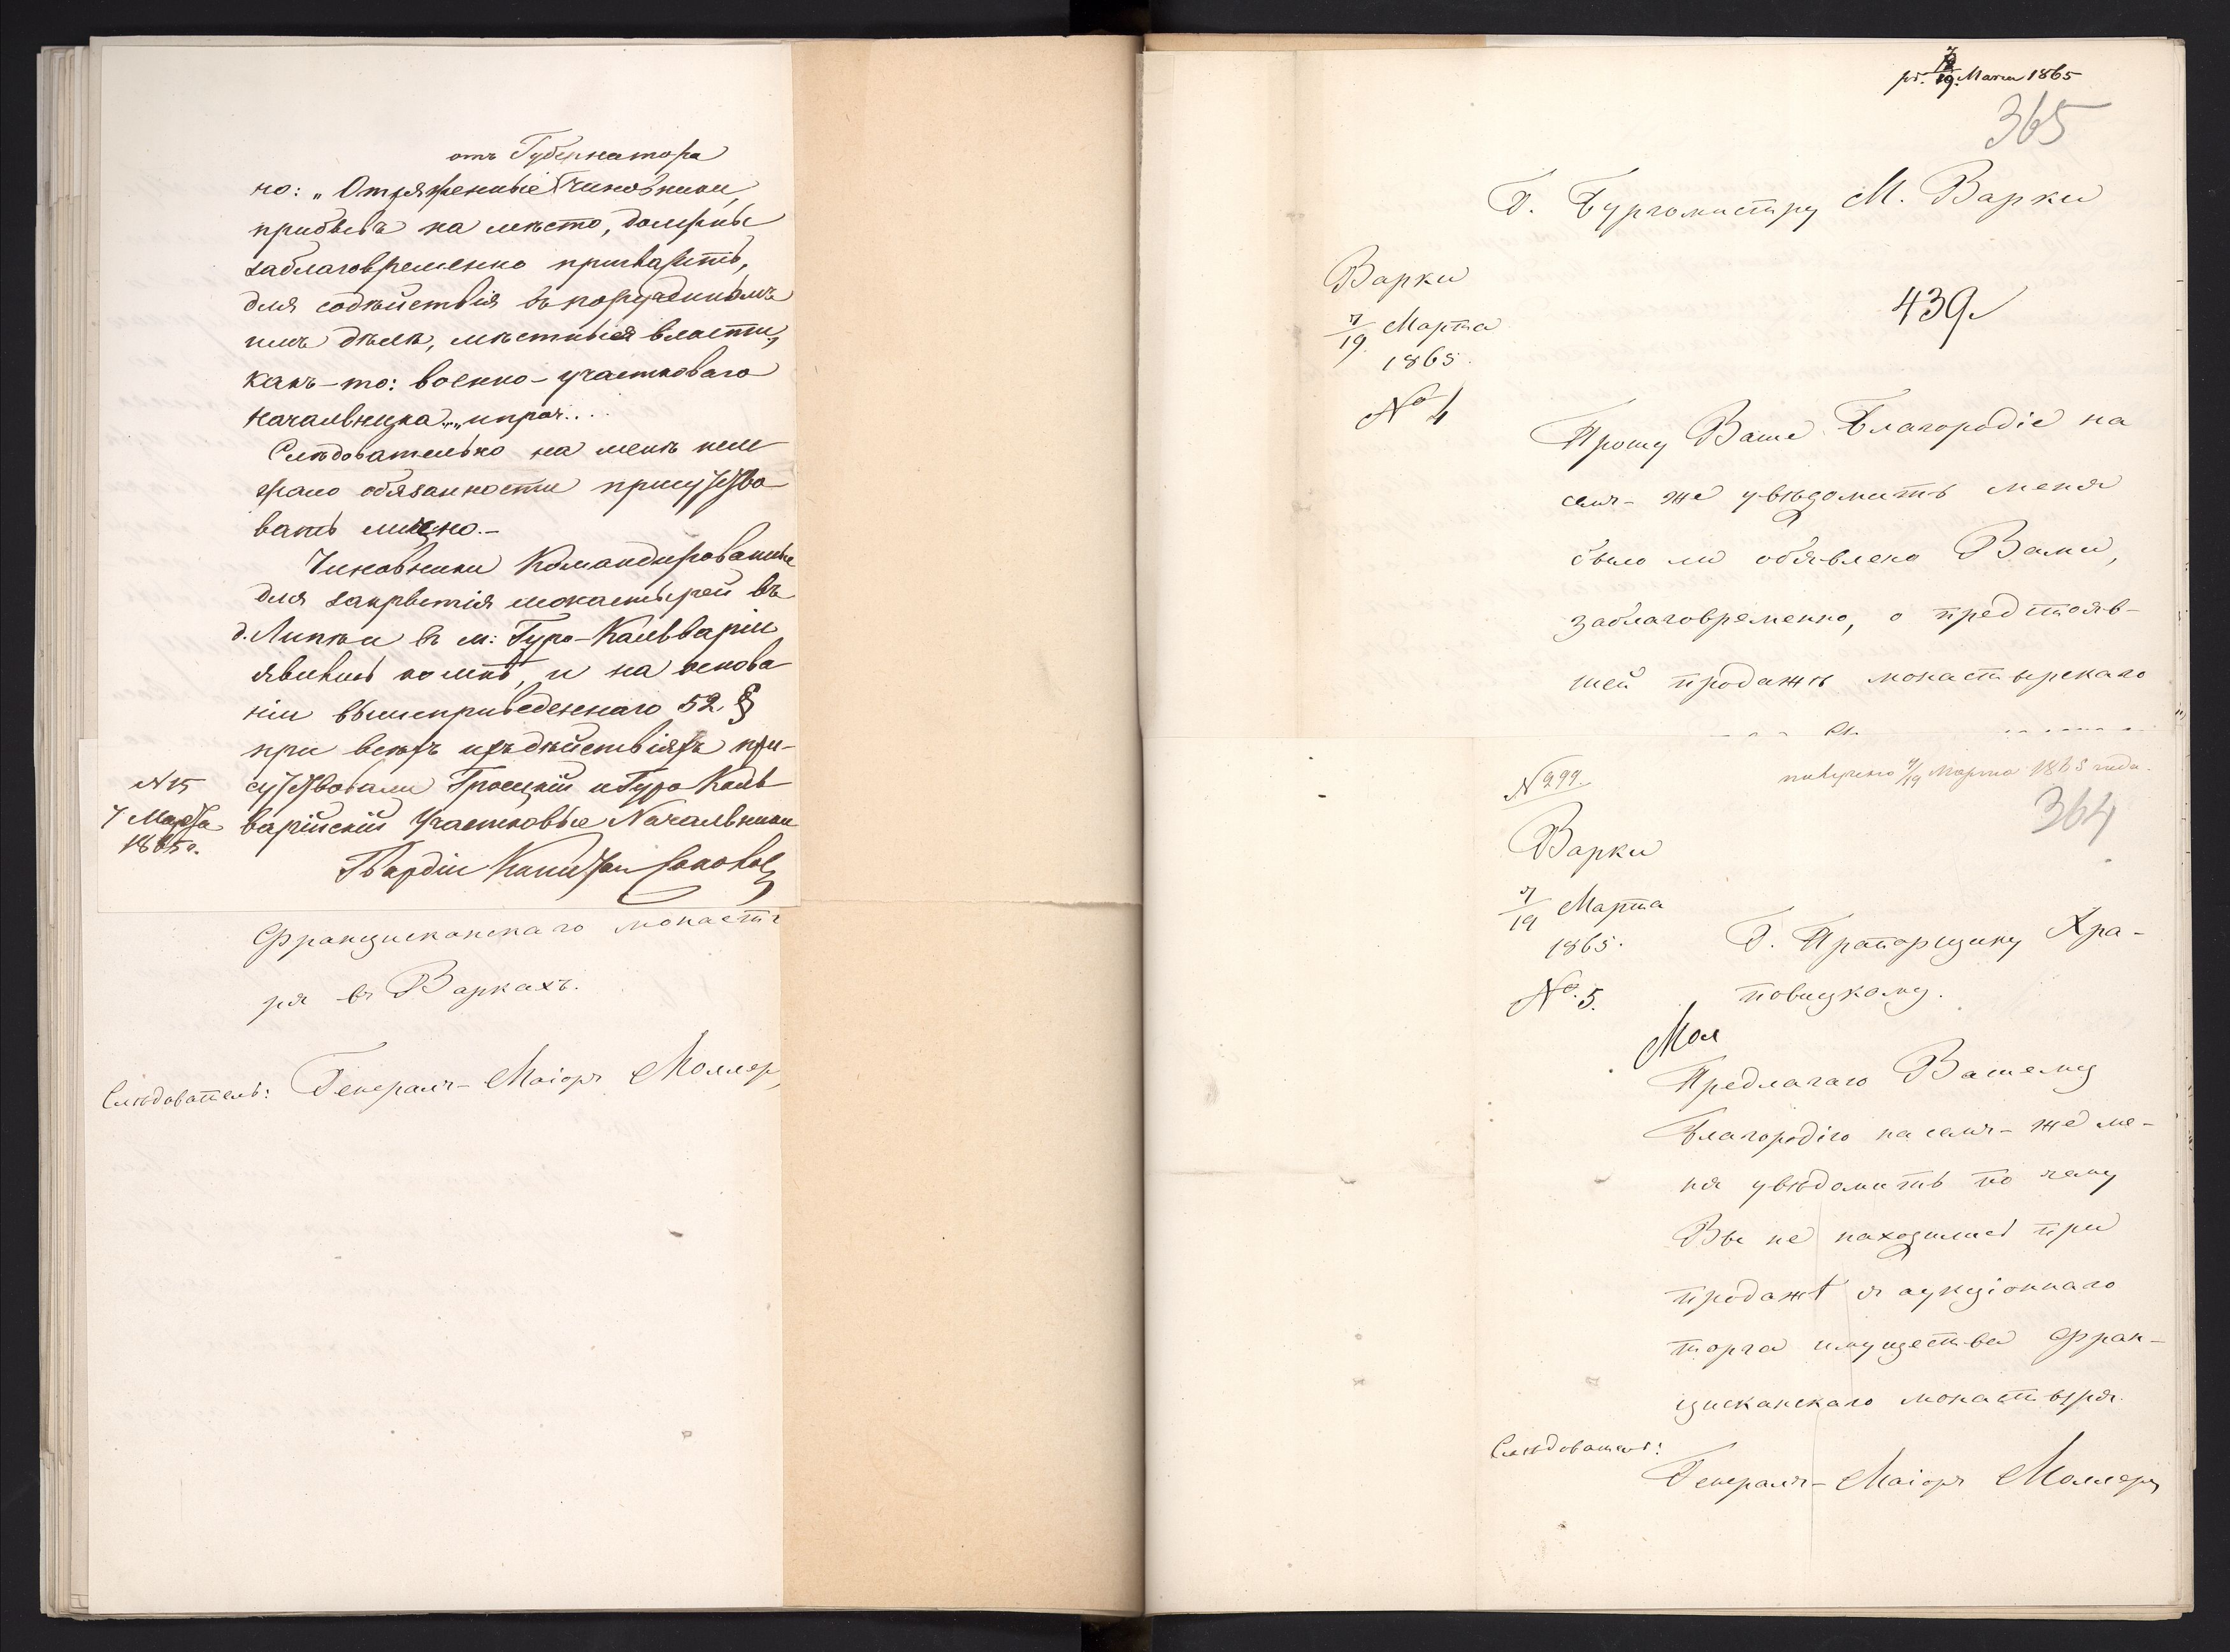 отъ Губернатора
но: „Отряженные чиновники,
прибывъ на мѣсто, должны
заблаговременно пригласить,
для содѣйствія въ порученномъ
имъ дѣлѣ, мѣстныя власти,
какъ-то: военно-участковаго
начальника„„ и проч...
Слѣдовательно на мене неле
жало обязанности присутство
вать лично.-
Чиновники Командированные
для закрытія монастырей въ
д. Липки въ м: Гуро-Кальваріи
явились ко мнѣ, и на основа
ніи вышеприведеннаго 52. §
при всѣхъ ихъ дѣйствіяхъ при-
сутствовали Гроецкій и Гуро Каль
варійскій Участковые Начальники
N 15
7 Марта
1865 г.
Гвардіи Капитан Соколов
Францисканскаго монасты
ря въ Варкахъ.
Слѣдователь: Генералъ-Маіоръ Моллеръ
pr. 7/19. Marca 1865
365
Г. Бургомистру М. Варки
Варки
7/19 Марта
1865.
№ 4
439.
Прошу Ваше Благородіе на
семъ-же увѣдомить меня
было ли объявлено Вами,
заблаговременно, о предстояв-
шей продажѣ монастырскаго
N 299.
получено 7/19 Марта 1865 года.
364
Варки
7/19 Марта
1865.
№. 5.
Г. Прапорщику Хра-
повицкому.
Предлагаю Вашему
Благородію на семъ-же ме-
ня увѣдомить по чему
Вы не находились при
продажѣ съ аукціоннаго
торга имущества Фран-
цисканскаго монастыря.
Слѣдователь:
Генералъ-Маіоръ Моллеръ